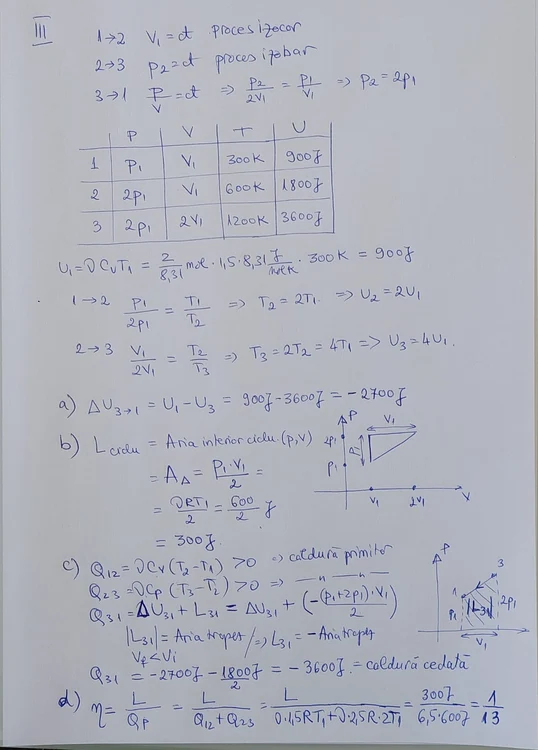 III
1→2 V₁ = ct proces izocor
2→3 p₂ = ct proces izobar
3→1 P/V = ct ⇒ P₂/2V₁ = P₁/V₁ ⇒ P₂ = 2p₁
P V T U
1 P₁ V₁ 300K 900J
2 2p₁ V₁ 600K 1800J
3 2p₁ 2V₁ 1200K 3600J
U₁ = νCvT₁ = 2/8,31 mol · 1,5 · 8,31 J/molK · 300K = 900J
1→2 P₁/2p₁ = T₁/T₂ ⇒ T₂ = 2T₁ ⇒ U₂ = 2U₁
2→3 V₁/2V₁ = T₂/T₃ ⇒ T₃ = 2T₂ = 4T₁ => U₃ = 4U₁.
a) ΔU₃→₁ = U₁ - U₃ = 900J - 3600J = -2700J
b) L ciclu = Aria interior ciclu (p,V)
= A△ = P₁·V₁/2 =
= νRT₁/2 = 600/2 J
= 300J.
P
2p₁
p₁
V₁
P₁
V₁ 2V₁ V
c) Q₁₂ = νCv(T₂-T₁) > 0 ⇒ căldură primită
Q₂₃ = νCp(T₃-T₂) > 0 ⇒ —"— —"—
Q₃₁ = ΔU₃₁ + L₃₁ = ΔU₃₁ + (-(p₁+2p₁)·V₁/2)
|L₃₁| = Aria trapez / ⇒ L₃₁ = -Aria trapez
Vf < Vi
P
3
1
P₁ |L₃₁| 2p₁
V₁
Q₃₁ = -2700J - 1800J/2 = -3600J = căldură cedată
d) η = L/Qp = L/(Q₁₂+Q₂₃) = L/(ν·1,5RT₁+ν·2,5R·2T₁) = 300J/6,5·600J = 1/13